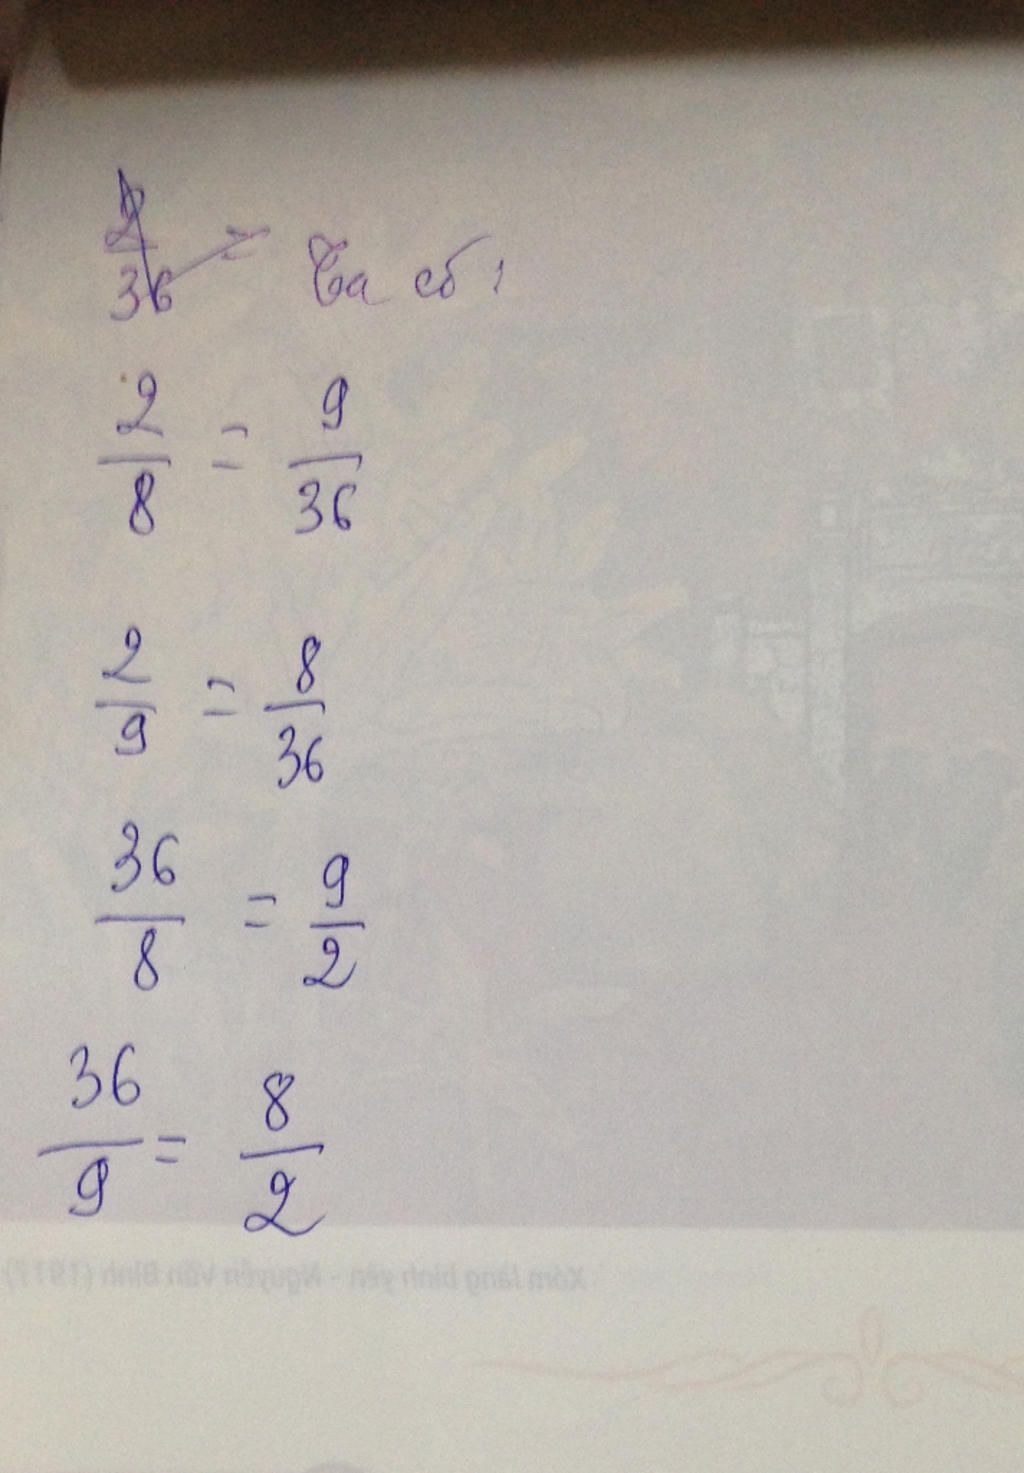 2/36 = Ta có:
2/8 = 9/36
2/9 = 8/36
36/8 = 9/2
36/9 = 8/2
Xóm làng bình yên - Nguyễn Văn Bình (1917)